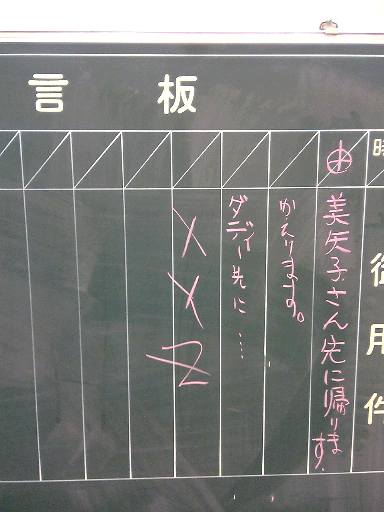 言板
時
御用件
美矢子さん先に帰ります.
かえります。
ダディー先に…
XYZ